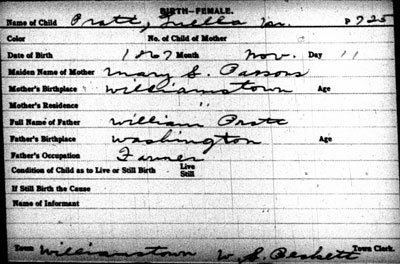 BIRTH—FEMALE.
Name of Child Pratt, Luella M. P 725
Color No. of Child of Mother
Date of Birth 1867 Month Nov. Day 11
Maiden Name of Mother Mary S. Parsons
Mother's Birthplace Williamstown Age
Mother's Residence "
Full Name of Father William Pratt
Father's Birthplace Washington Age
Father's Occupation Farmer
Condition of Child as to Live or Still Birth Live Still
If Still Birth the Cause
Name of Informant
Town Williamstown W. S. Beckett Town Clerk.